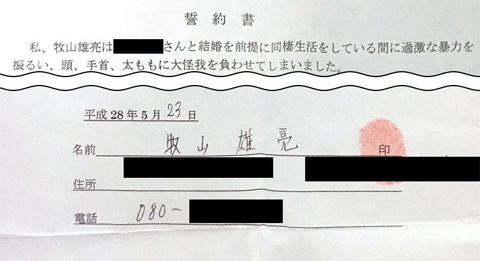 誓約書
私、牧山雄亮はさんと結婚を前提に同棲生活をしている間に過激な暴力を
振るい、頭、手首、太ももに大怪我を負わせてしまいました。
平成28年5月23日
名前 牧山雄亮 印
住所
電話 080-